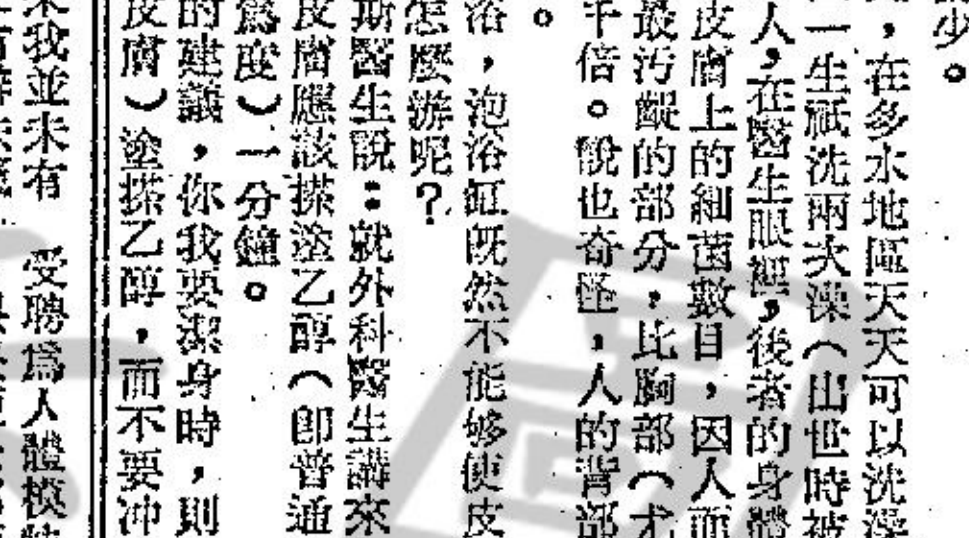 少。
，在多水地區天天可以洗澡
一生祇洗兩次澡（出世時被
人，在醫生眼裡，後者的身體
皮膚上的細菌數目，因人而
最汚齪的部分，比胸部（才
千倍。說也奇怪，人的背部
。
浴，泡浴缸既然不能够使皮
怎麼游呢？
斯醫生說：就外科醫生講來
皮膚應該搽塗乙醇（卽普通
爲度）一分鐘。
的建議，你我要潔身時，則
皮膚）塗搽乙醇，而不要冲
我並未有　受聘爲人體模